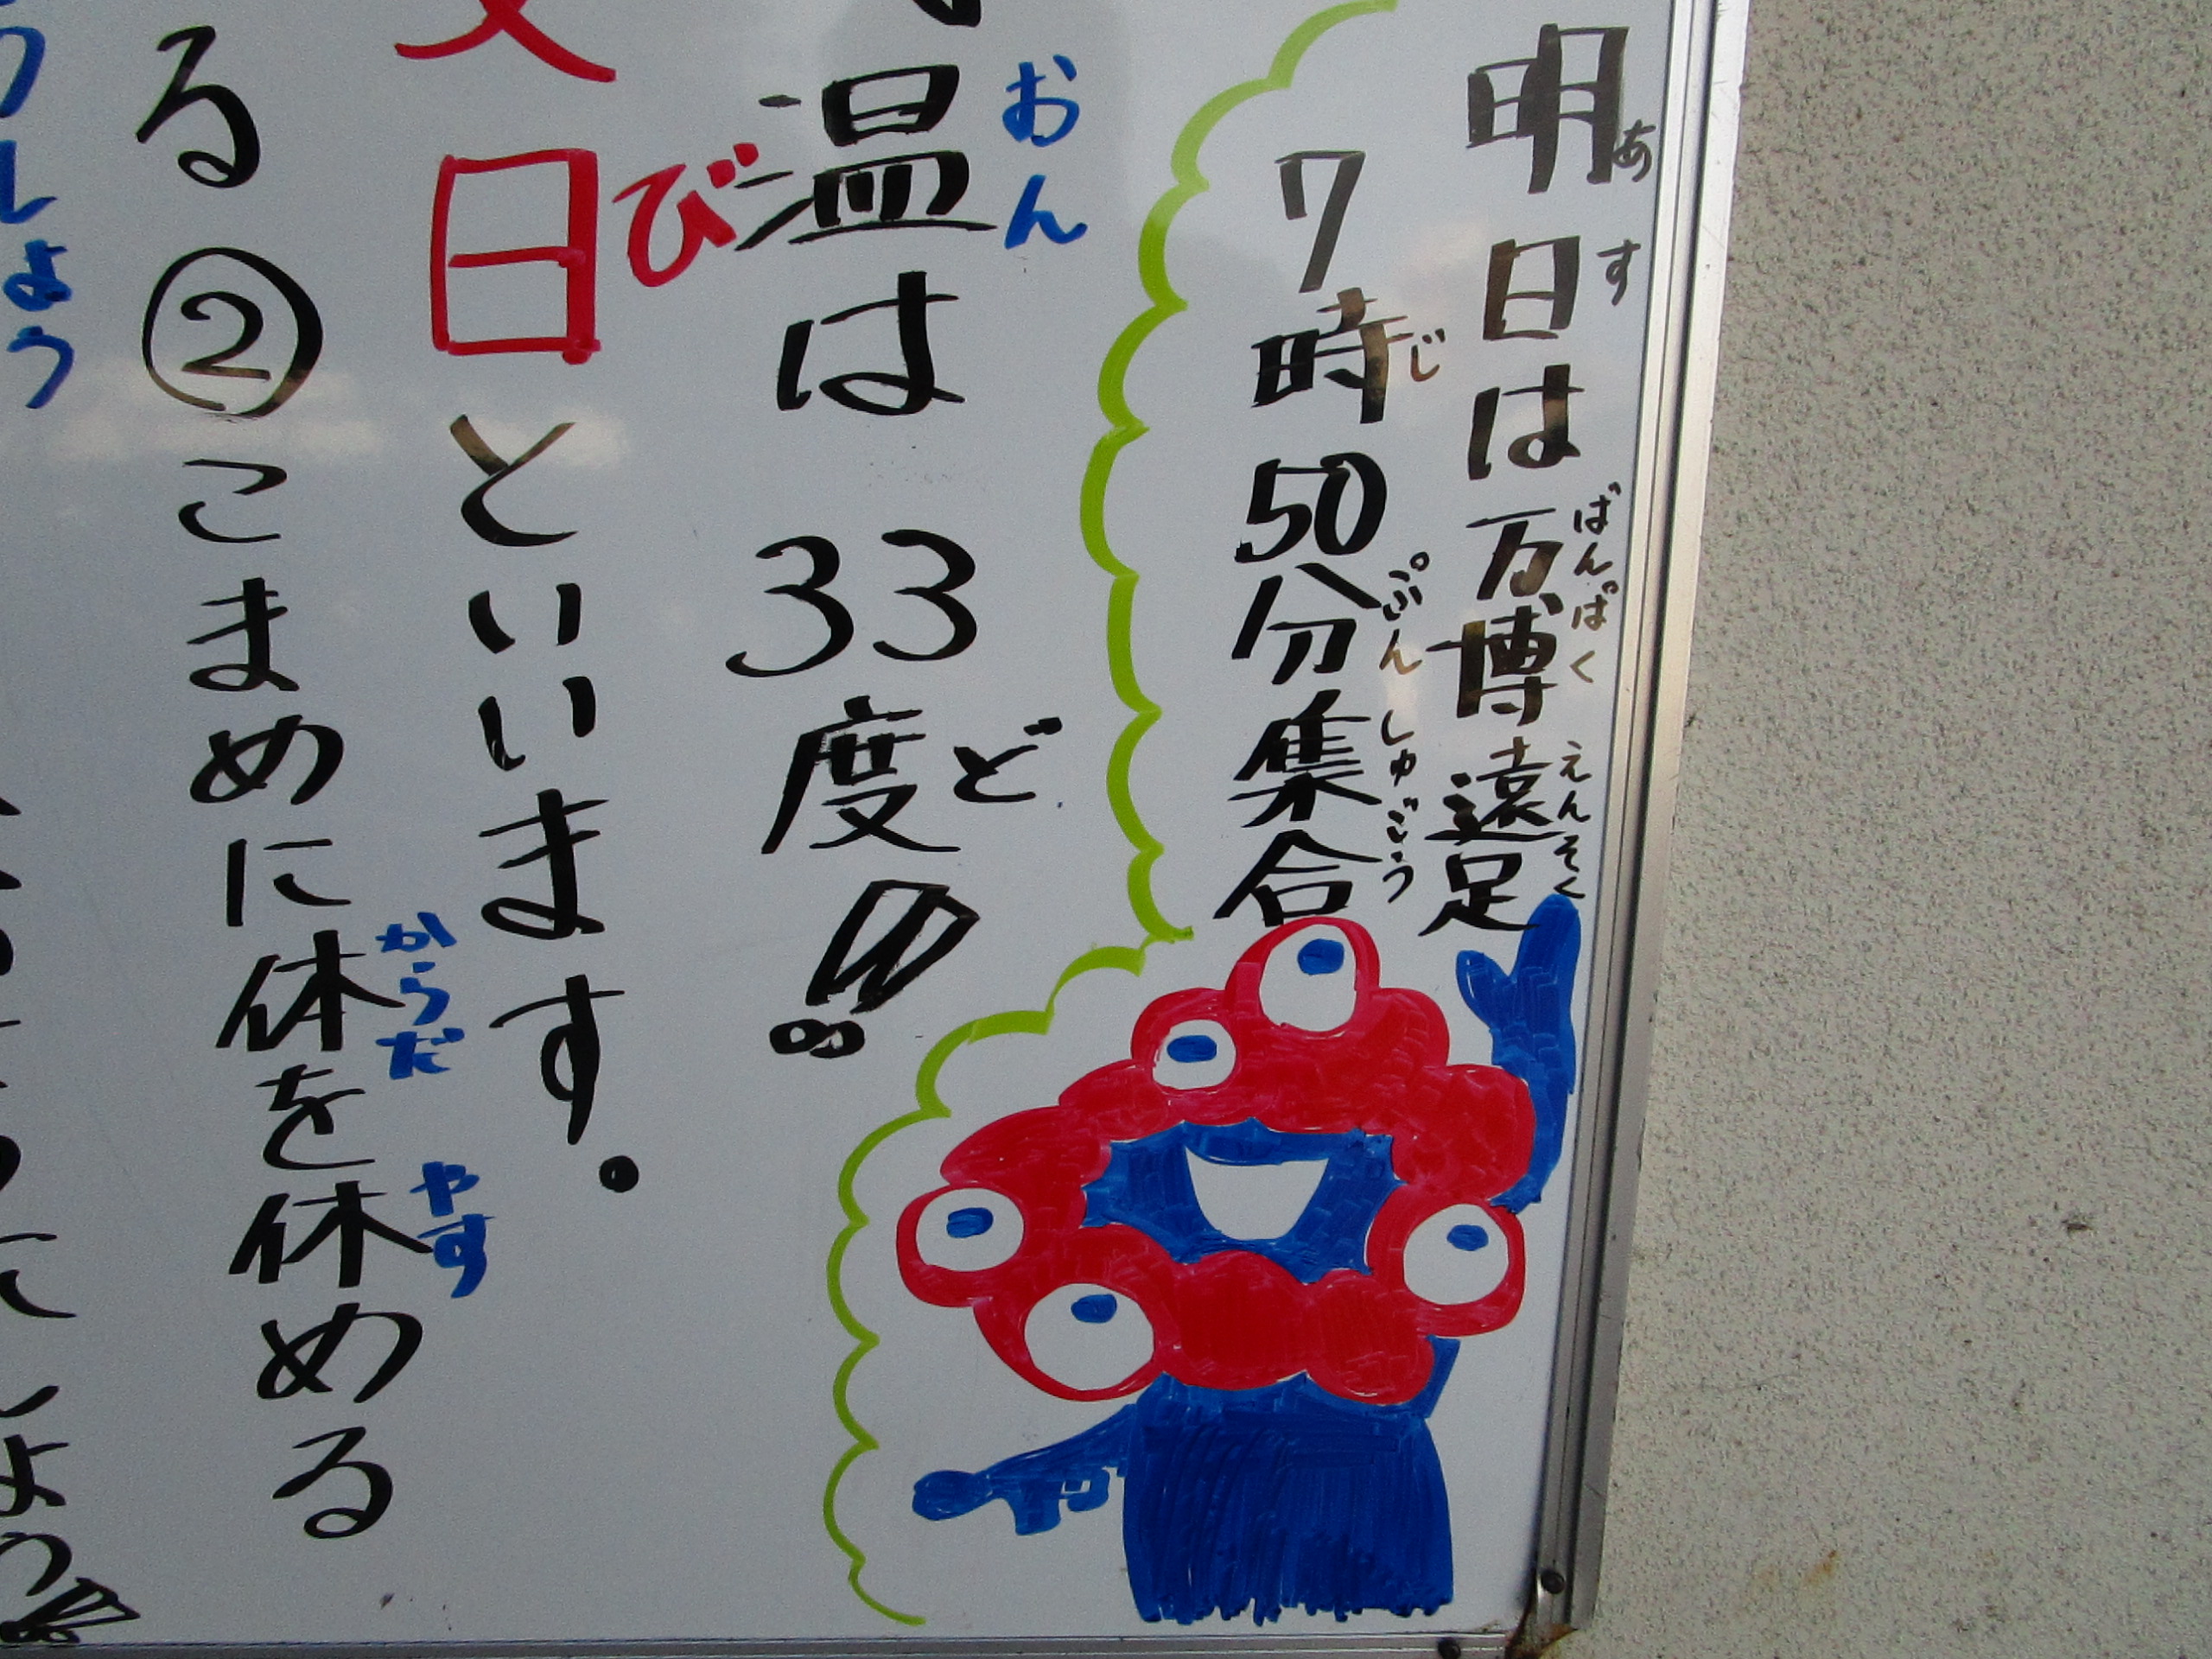 明日は万博遠足
あす ばんぱく えんそく
7時50分集合
じ ぷん しゅごう
温は 33度!!
おん ど
日といいます。
び
る②こまめに体を休める
からだ やす
しょう